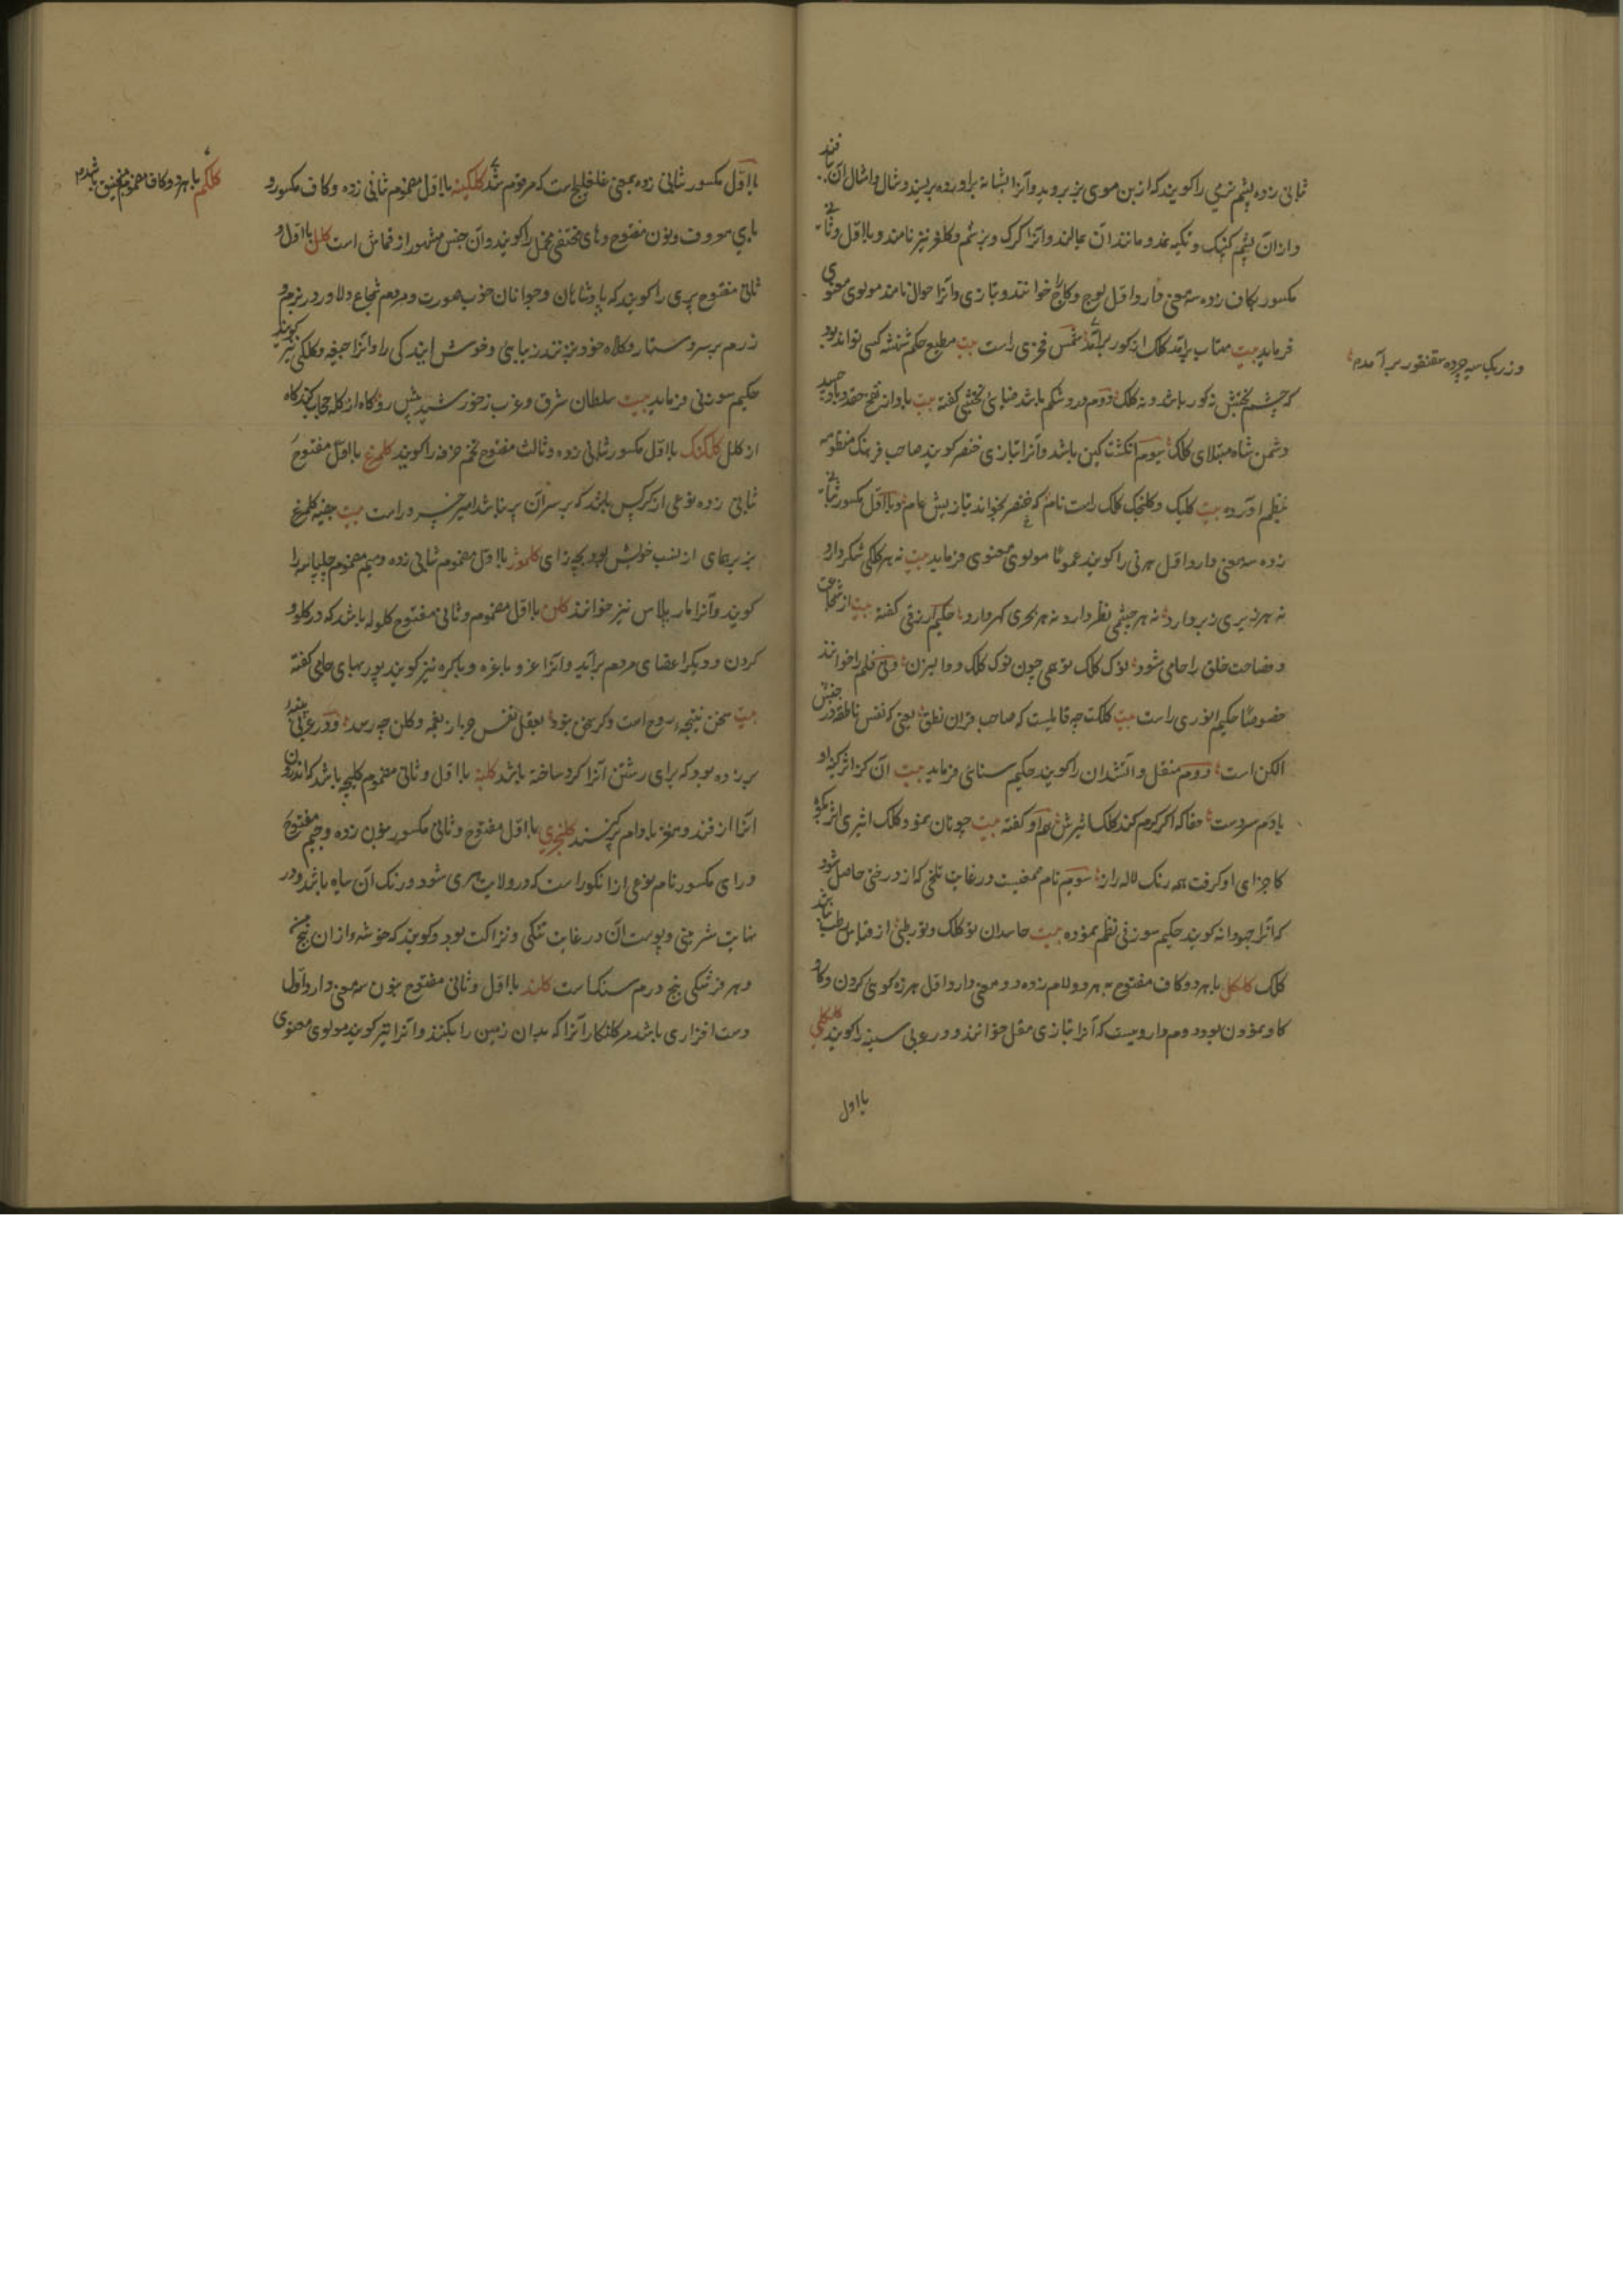 ثانی زده پشم نرمی را کویند که از بن موی بز بروید و آنرا بشانه براورده بریسند و شال و امثال آن بافند
و ازان پشم کپنک و تکیه نمد و مانند آن بمالند و آنرا کرک و بزشم و کلغر نیز نامند و با اول و ثانی
مکسور بکاف زده سه معنی دارد اول لوچ و کاج را خوانند و بتازی و آنرا احول نامند مولوی معنوی
فرماید بیت مهتاب برآمد کلک از کور برآمد وز ریک سیه چرده سقنقور برآمد شمس فخری راست بیت مطیع حکم شهنشه کسی تواند بود
که چشم بختش نه کور باشد و نه کلک دوم درد شکم باشد ضیائی نخشبی کفته بیت باد از نفخ حقد و باد حسد
دشمن شاه مبتلای کلک سیوم انکشت کهین باشد و آنرا بتازی خنصر کویند صاحب فرهنک منظومه
بنظم آورده بیت کلیک و کلنجک کلک راست نام که خنصر بخواند بتازیش عام و با اول مکسور بثانی
زده سه معنی دارد اول هر نی را کویند عموما مولوی معنوی فرماید بیت نه هر کلکی شکر دارد
نه هر زیری زبر دارد نه هر چشمی نظر دارد نه هر بحری کهر دارد حکیم ازرقی کفته بیت از شجاعت
و فصاحت خلق را حامی شود نوک کلک توهمی چون نوک کلک و مالبزن و نی قلم را خوانند
خصوصا حکیم انوری راست بیت کلکت چه قابلیست که صاحب قران نطق یعنی که نفس ناطقه در جنبش
الکن است دوم منقل و آتشدان را کویند حکیم سنائی فرماید بیت آن کز اثر کینه او
بادم سردست حقا که اکر کرم کند کلک اثیرش هم او کفته بیت چونان نمود کلک اثیری اثر بکوه
کاجزای او کرفت همه رنک لاله زار سویم نام صمغیست در غایت تلخی که از درختی حاصل شود
که آنرا جهودانه کویند حکیم سوزنی نظم نموده بیت حاسدان تو کلک و تو رطبی از قیاس رطب نباشد
کلک کلکل با هر دو کاف مفتوح بهر دو لام زده دو معنی دارد اول هرزه کوئی کردن و کاو
کاو نمودن بود دوم داروییست که آنرا بتازی مقل خوانند و در عربی سینه را کویند کلکلی
با اول
وز ریک سیه چرده سقنقور برآمد
با اول مکسور ثانی زده بمعنی غلغلیج است که مرقوم شد کلکینه با اول مضموم ثانی زده و کاف مکسور و
یای معروف و نون مفتوح و های مختفی مخمل را کویند و آن جنس مشهور از قماش است کلل با اول و
ثانی مفتوح پری را کویند که پادشاهان و جوانان خوب صورت و مردم شجاع دلاور در بزم و
رزم بر سر و دستار و کلاه خود بزنند زیبایی و خوش ایندکی را و آنرا جیغه و کلکی نیز کویند
حکیم سوزنی فرماید بیت سلطان شرق و غرب ز خورشید پیش رو کاه از کله حجاب کند کاه
از کلل کلکنک با اول مکسور ثانی زده و ثالث مفتوح تخم خرفه را کویند کلمرغ با اول مفتوح
ثانی زده نوعی از کرکس باشد که بر سر آن پر نباشد امیر خسرو راست بیت جیفه کلمرغ
بزیر پای از نسب خویش بود بچه زای کلموژ با اول مضموم ثانی زده و میم مضموم چلپاسه را
کویند و آنرا مارپلاس نیز خوانند کلن با اول مضموم و ثانی مفتوح کلوله باشد که در کلو و
کردن و دیکر اعضای مردم برآید و آنرا غر و باغره و باکره نیز کویند پوربهای جامی کفته
بیت سخن نتیجهء روح است و کر سخن نبود بعقل نفس چه باز نغمه و کلن چه رسد و در عربی پنبه
بر زده بود که برای رشتن آنرا کرد ساخته باشد کلبه با اول و ثانی مضموم کلیچه باشد که اندرون
آنرا از قند و مغز بادام پر کنند کلنجری با اول مفتوح و ثانی مکسور بنون زده و جیم مفتوح
و رای مکسور نام نوعی از انکور است که در ولایت هری شود و رنک آن سیاه باشد و در
نهایت شیرینی و پوست آن در غایت تنکی و نزاکت بود و کویند که خوشهء ازان پنج من
و هر فزشکی پنج درم سنک است کلند با اول و ثانی مفتوح بنون سه معنی دارد اول
دست افزاری باشد مر کلنکار آنرا که بدان زمین را بکنند و آنرا تبر کویند مولوی معنوی
کلکم با هر دو کاف مضموم منجنیق باشد